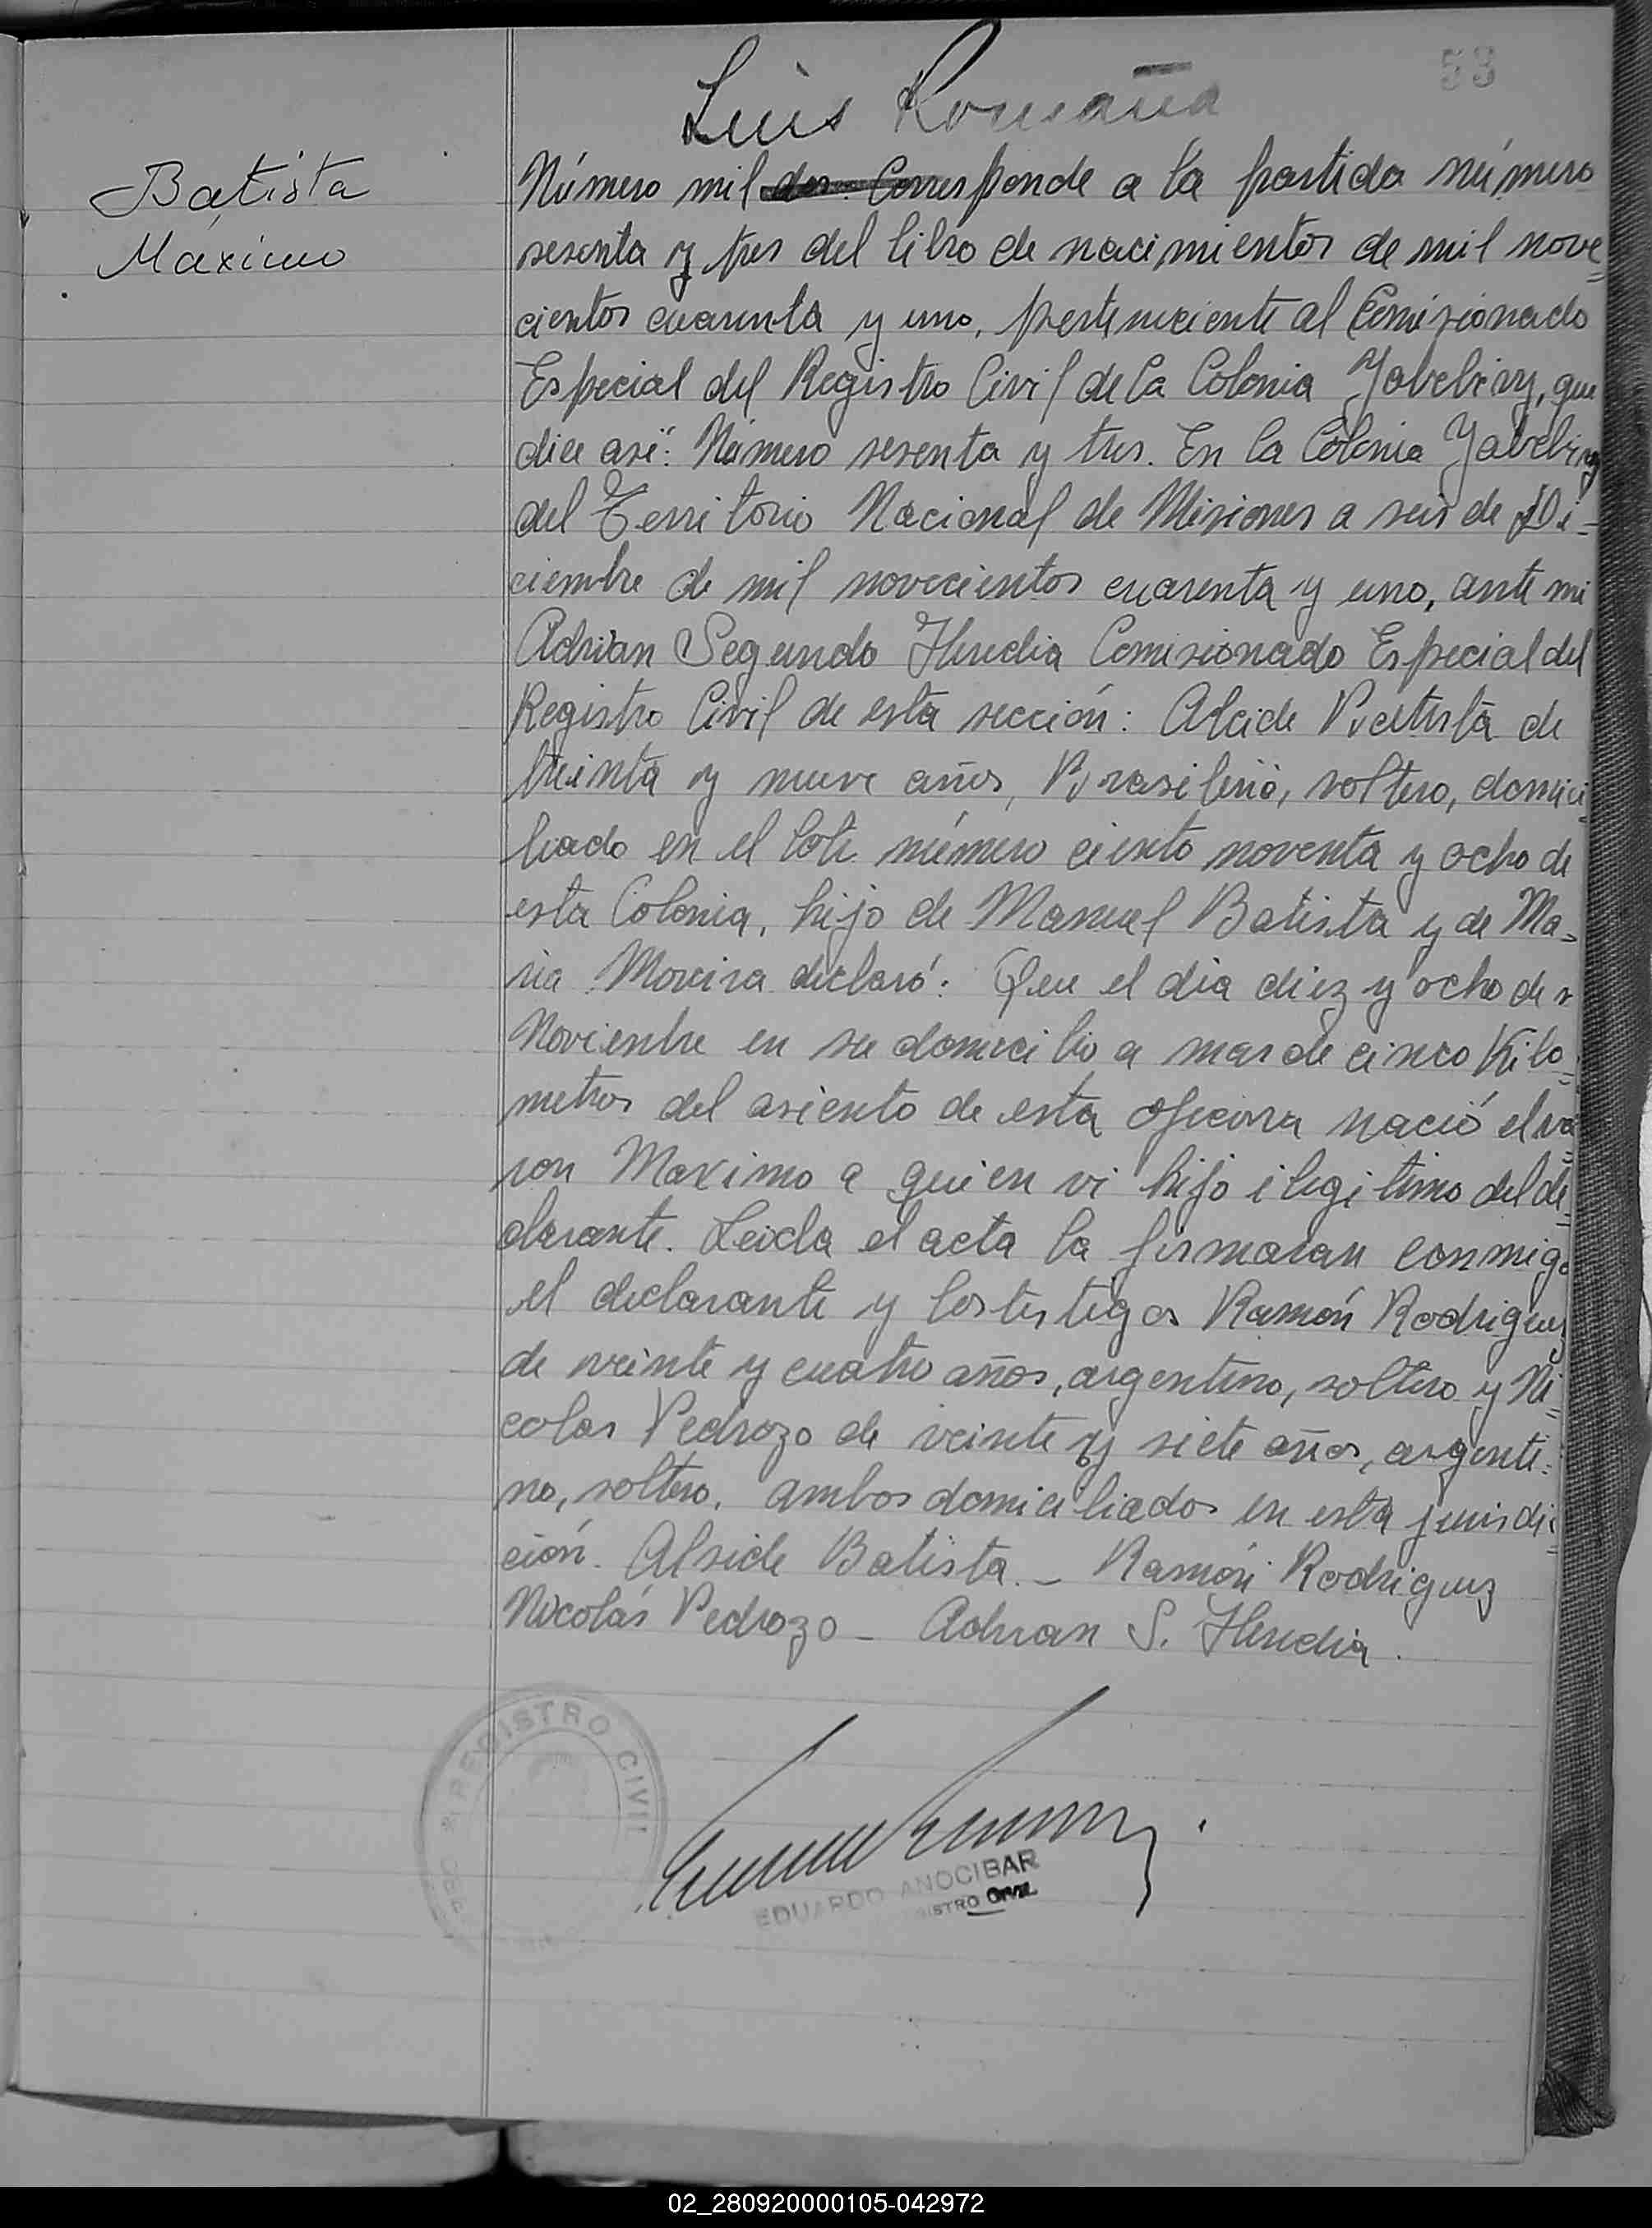 53
Luis Romaña
Batista
Máximo
Número mil dos. Corresponde a la partida número
sesenta y tres del libro de nacimientos de mil nove=
cientos cuarenta y uno, perteneciente al Comisionado
Especial del Registro Civil de la Colonia Yabebiry, que
dice asi: Número sesenta y tres. En la Colonia Yabebiry
del Territorio Nacional de Misiones a seis de Di-
ciembre de mil novecientos cuarenta y uno, ante mi
Adrian Segundo Heredia Comisionado Especial del
Registro Civil de esta sección: Alcide Batista de
treinta y nueve años, Brasileño, soltero, domici=
liado en el lote número ciento noventa y ocho de
esta Colonia, hijo de Manuel Batista y de Ma=
ria Moreira declaró: Que el dia diez y ocho de
Noviembre en su domicilio a mas de cinco Kilo=
metros del asiento de esta oficina nació el va=
ron Maximo a quien vi hijo ilegitimo del de=
clarante. Leida el acta la firmaran conmigo
el declarante y los testigos Ramón Rodriguez
de veinte y cuatro años, argentino, soltero y Ni=
colas Pedrozo de veinte y siete años, argenti=
no, soltero, ambos domiciliados en esta jurisdi=
ción. Alside Batista. - Ramón Rodriguez
Nicolás Pedrozo - Adrian S. Heredia.
REGISTRO CIVIL
EDUARDO ANOCIBAR
REGISTRO CIVIL
02_280920000105-042972